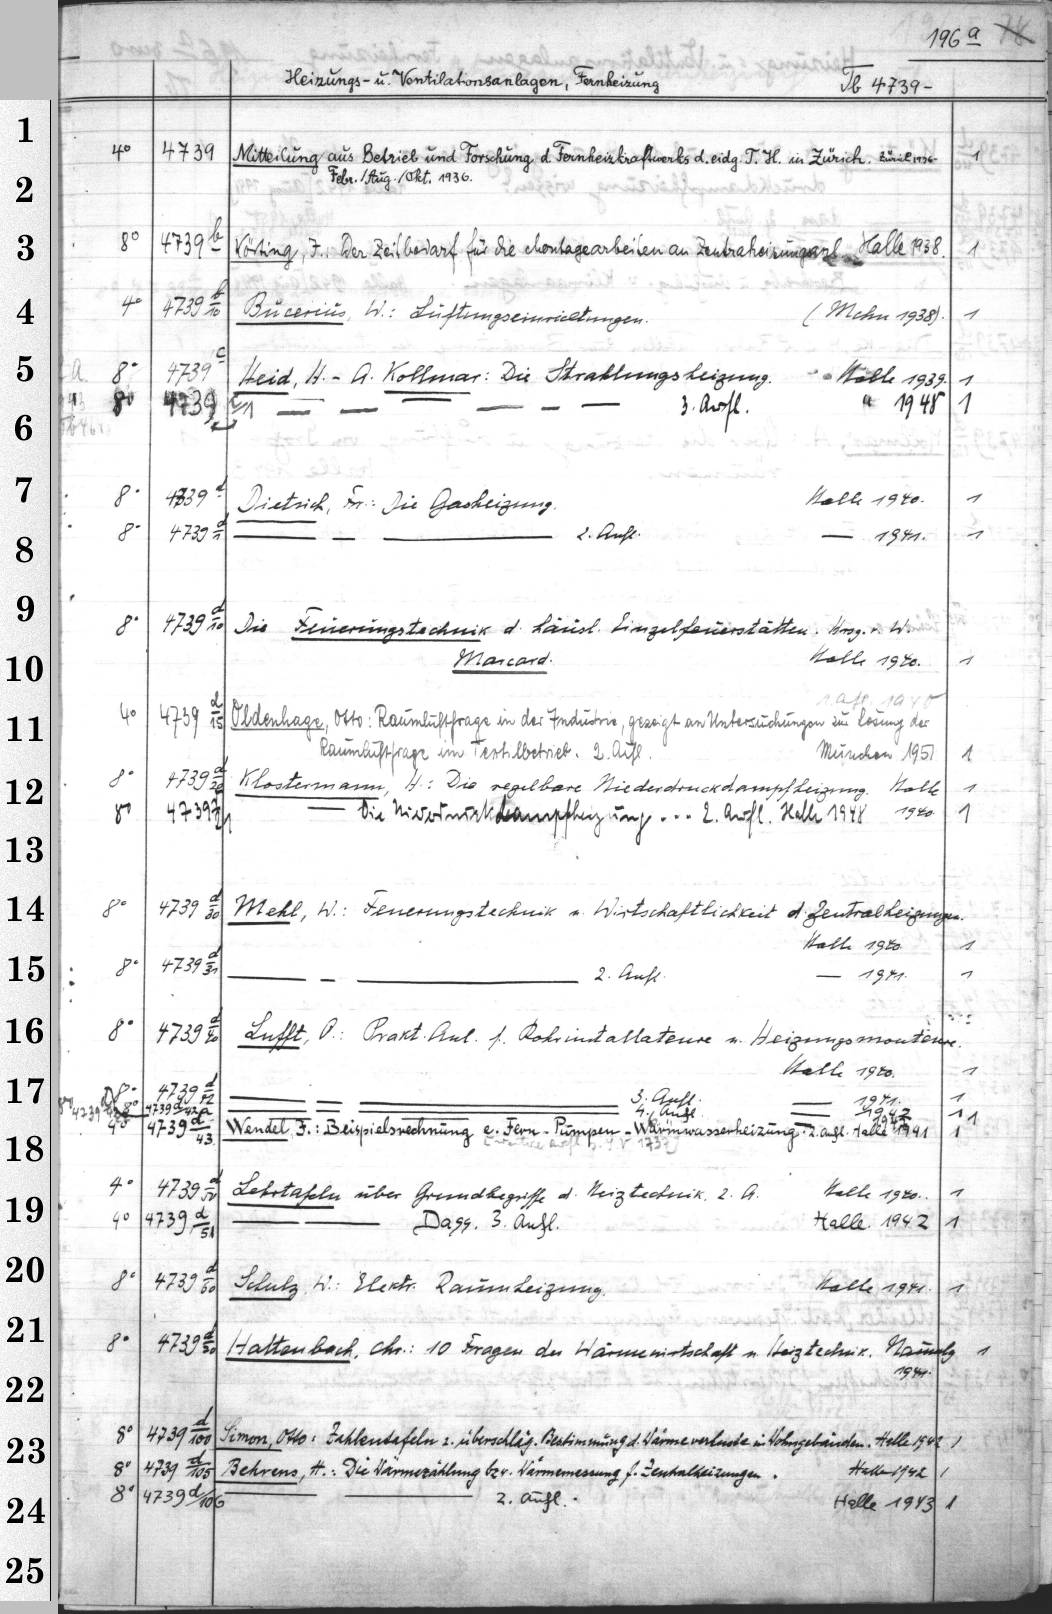 196a
Heizungs- u. Ventilationsanlagen, Fernheizung Tb 4739-
1
4° 4739 Mitteilung aus Betrieb und Forschung d. Fernheizkraftwerks d. eidg. T. H. in Zürich. Zürich 1936- 1
Febr./Aug./Okt. 1936.
2
3
8° 4739 b Körting, J.: Der Zeitbedarf für die Montagearbeiten an Halle 1938. 1
4
4° 4739 b/10 Bucerius, W.: Lüftungseinrichtungen. (Mchn 1938). 1
5
8° 4739 c Heid, H. - A. Kollmar: Die Strahlungsheizung. Halle 1939. 1
8° 4739 c/1 — — — — — — 3. Aufl. " 1948 1
6
7
8° 4739 d Dietrich, Fr.: Die Gasheizung. Halle 1940. 1
8° 4739 d/1 — — — 2. Aufl. — 1941. 1
8
9
8° 4739 d/10 Die Feuerungstechnik d. häusl. Einzelfeuerstätten. Hrsg. v. W.
Marcard. Halle 1940. 1
10
11
4° 4739 d/15 Oldenhage, Otto: Raumluftfrage in der Industrie, gezeigt an Untersuchungen zur Lösung der
Raumluftfrage im Textilbetrieb. 2. Aufl. München 1951 1
12
8° 4739 d/20 Klostermann, H.: Die regelbare Niederdruckdampfheizung. Halle 1
8° 4739 — Die Niederdruckdampfheizung ... 2. Aufl. Halle 1948 1940 1
13
14
8° 4739 d/30 Mehl, W.: Feuerungstechnik u. Wirtschaftlichkeit d. Zentralheizungen.
Halle 1940 1
15
8° 4739 d/31 — — — 2. Aufl. — 1941. 1
16
8° 4739 d/40 Lufft, P.: Prakt. Anl. f. Rohrinstallateure u. Heizungsmonteure.
Halle 1940. 1
17
8° 4739 d/42 — — — 3. Aufl. — 1941. 1
8° 4739 d/42a — — — 4. Aufl. — 1942 1
4° 4739 d/43 Wendel, F.: Beispielsrechnung e. Fern-Pumpen-Warmwasserheizung. 2. Aufl. Halle 1941 1
18
4° 4739 d/50 Lehrtafeln über Grundbegriffe d. Heiztechnik. 2. A. Halle 1940. 1
19
4° 4739 d/51 — — Dass. 3. Aufl. Halle. 1942 1
20
8° 4739 d/60 Schulz, W.: Elektr. Raumheizung. Halle 1941. 1
21
8° 4739 d/80 Hattenbach, Chr.: 10 Fragen der Wärmewirtschaft u. Heiztechnik. 1
1941.
22
8° 4739 d/100 Simon, Otto: Zahlentafeln z. überschläg. Bestimmung d. Wärmeverluste in Wohngebäuden. Halle 1942 1
23
8° 4739 d/105 Behrens, H.: Die Wärmezählung bzw. Wärmemessung f. Zentralheizungen. Halle 1942 1
8° 4739 d/106 — — 2. Aufl. Halle 1943 1
24
25